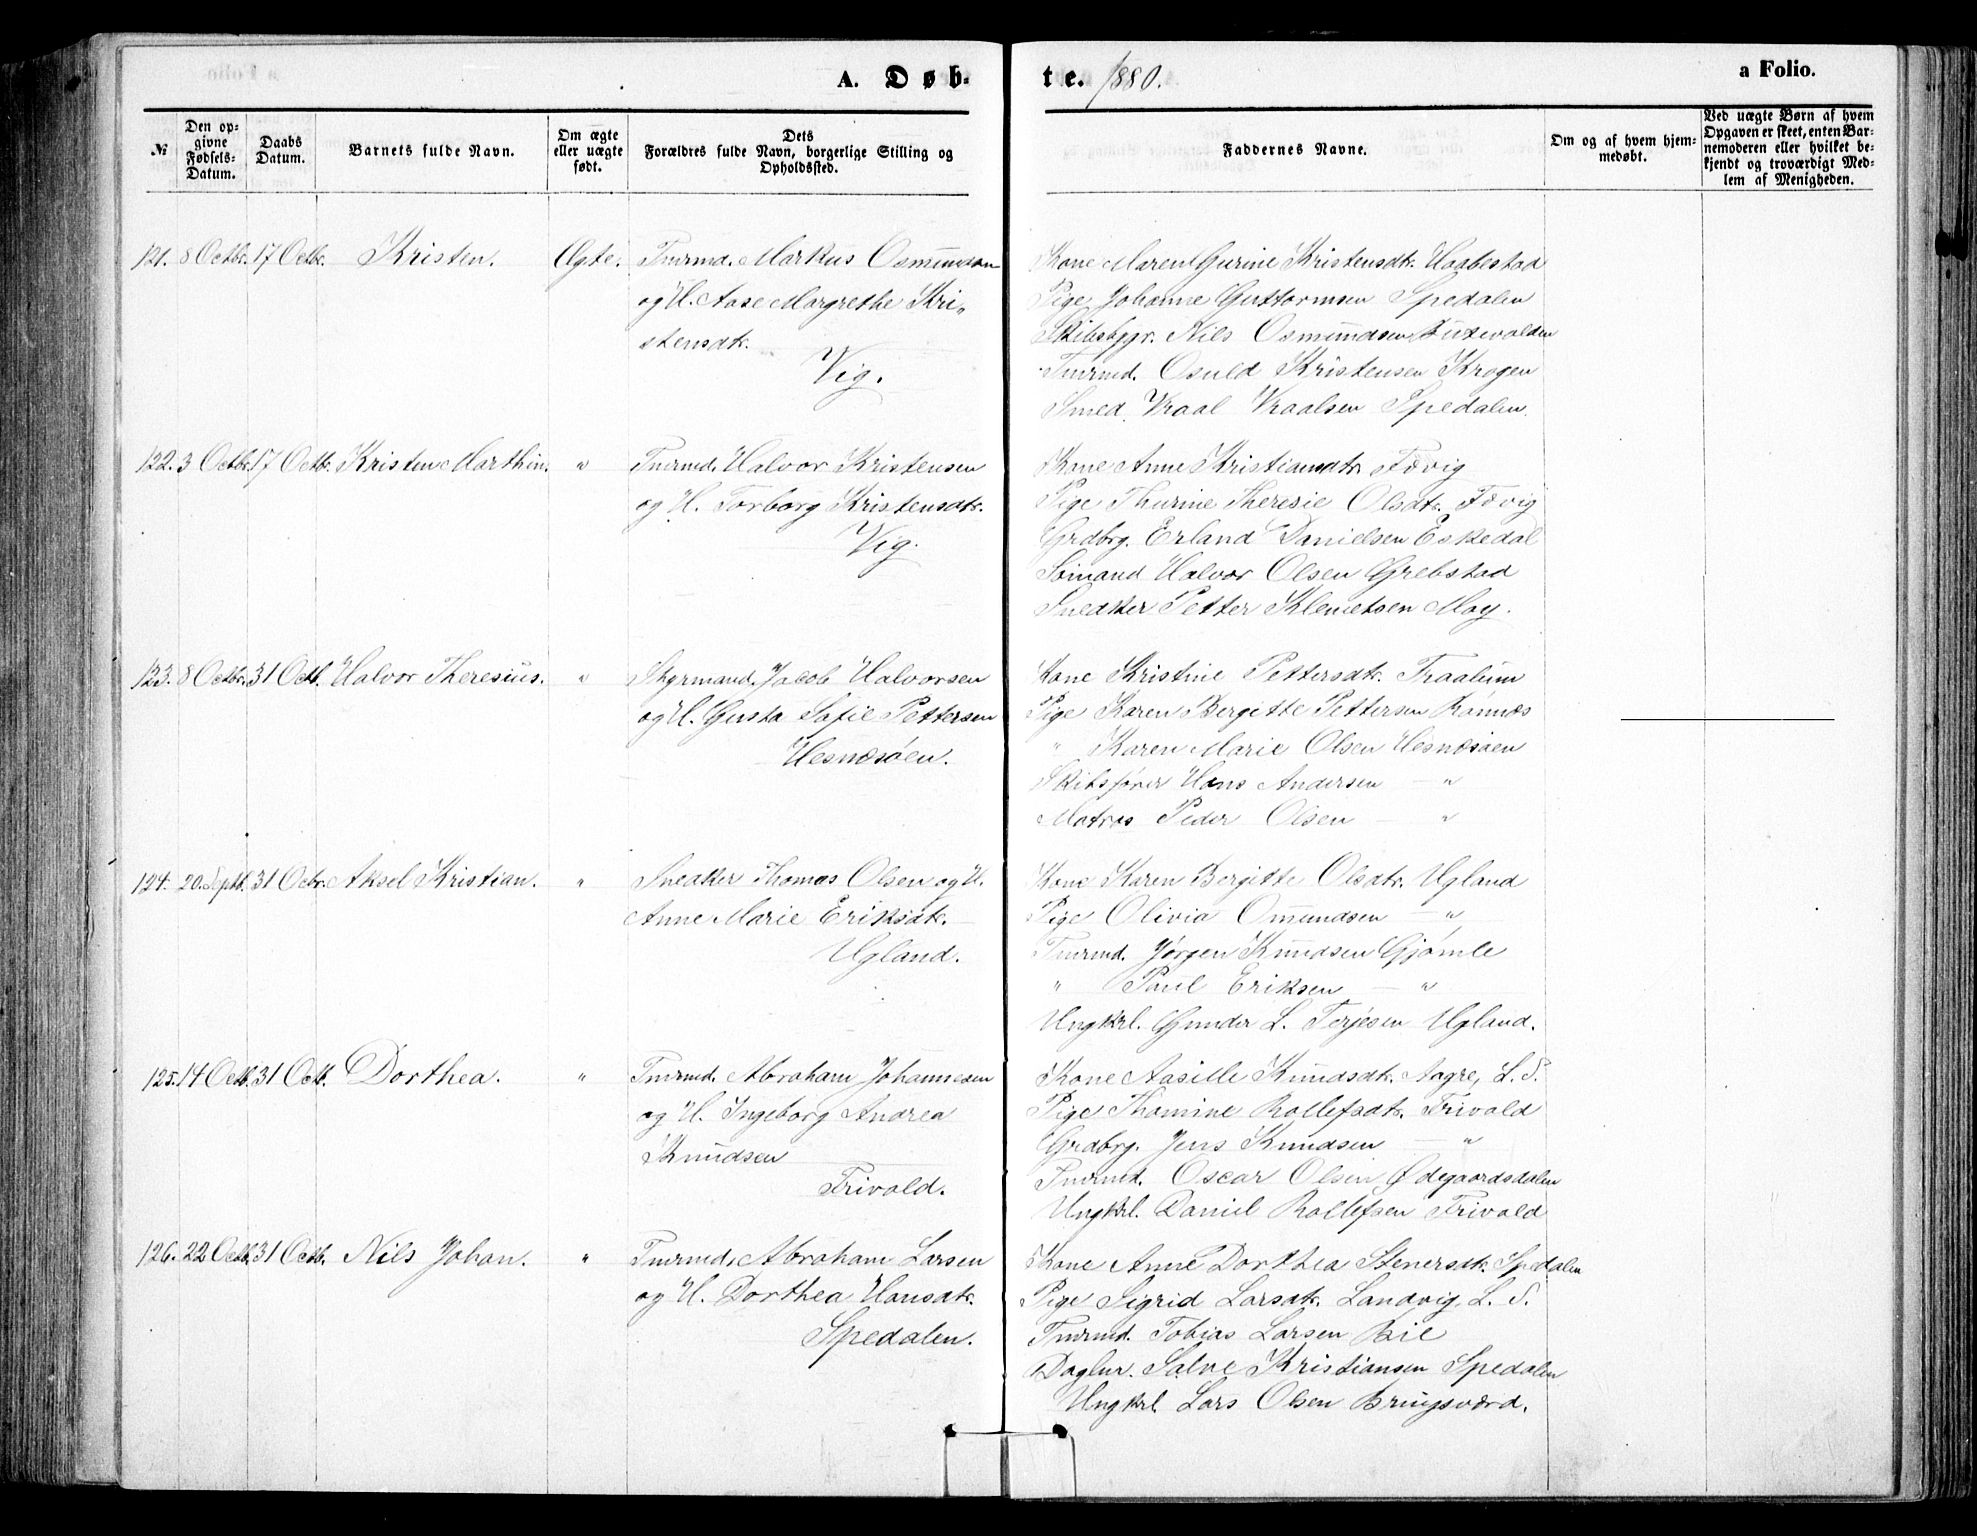 A. Døb-
te. 1880.
a Folio.
№
Den op-
givne
Fødsels-
Datum.
Daabs
Datum.
Barnets fulde Navn.
Om ægte
eller uægte
født.
Dets
Forældres fulde Navn, borgerlige Stilling og
Opholdssted.
Faddernes Navne.
Om og af hvem hjem-
medøbt.
Ved uægte Børn af hvem
Opgaven er skeet, enten Bar-
nemoderen eller hvilket be-
kjendt og troværdigt Med-
lem af Menigheden.
121. 8 Octbr. 17 Octbr. Kristen. Ægte. Tmrmd. Markus Osmundsen
og H. Aase Margrethe Kri-
stensdtr.
Vig.
Kone Maren Gurine Kristensdtr. Haabestad
Pige Johanne Guttormsen Spedalen
Skibsbygr. Nils Osmundsen
Tmrmd. Osuld Kristensen Krogen
Smed Vraal Vraalsen Spedalen.
122. 3 Octbr. 17 Octbr. Kristen Marthin. " Tmrmd. Halvor Kristensen
og H. Torborg Kristensdtr.
Vig.
Kone Anne Kristiansdtr. Fævig
Pige Thurine Theresie Olsdtr. Fævig
Grdbrg. Erland Danielsen Eskedal
Sømand Halvor Olsen Grebstad
Snedker Petter Klemetsen Moy.
123. 8 Octbr. 31 Octb. Halvor Theresius. " Styrmand. Jacob Halvorsen
og H. Gusta Sofie Pettersen
Hesnæsøen.
Kone Kristine Pettersdtr. Traalum
Pige Karen Bergitte Pettersen Rønnæs
" Karen Marie Olsen Hesnæsøen
Skibsfører Hans Andersen — "
Matros Peder Olsen — "
124. 20. Septb. 31 Octbr. Aksel Kristian. " Snedker Thomas Olsen og H.
Anne Marie Eriksdtr.
Ugland.
Kone Karen Bergitte Olsdtr. Ugland
Pige Olivia Omundsen — "
Tmrmd. Jørgen Knudsen Gjømle
" Paul Eriksen — "
Ungkrl. Gunder L. Terjesen Ugland.
125. 14 Octb. 31 Octb. Dorthea. " Tmrmd. Abraham Johannesen
og H. Ingeborg Andrea
Knudsen
Trivold.
Kone Aasille Knudsdtr. Aagre, L. S.
Pige Thomine Rollefsdtr. Trivold
Grdbrg. Jens Knudsen — "
Tmrmd. Oscar Olsen Ødegaardsdalen
Ungkrl. Daniel Rollefsen Trivold
126. 22 Octb. 31 Octb. Nils Johan. " Tmrmd. Abraham Larsen
og H. Dorthea Hansdtr.
Spedalen.
Kone Anne Dorthea Stenersdtr. Spedalen
Pige Sigrid Larsdtr. Landvig, L. S.
Tmrmd. Tobias Larsen Bie
Daglnr. Salve Kristiansen Spedalen
Ungkrl. Lars Olsen Bringsværd.